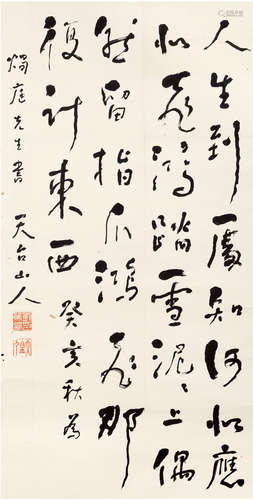 人生到處知何似應
似飛鴻踏雪泥〻上偶
然留指爪鴻飛那
復計東西 癸亥秋為
燭庭先生書 天台山人